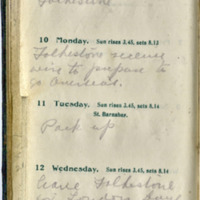 Folkestone
10 Monday. Sun rises 3.45, sets 8.13
Folkestone receive
wire to prepare to
go overseas.
11 Tuesday. Sun rises 3.45, sets 8.14
St. Barnabas.
Pack up
12 Wednesday. Sun rises 3.45, sets 8.14
leave Folkestone
for London